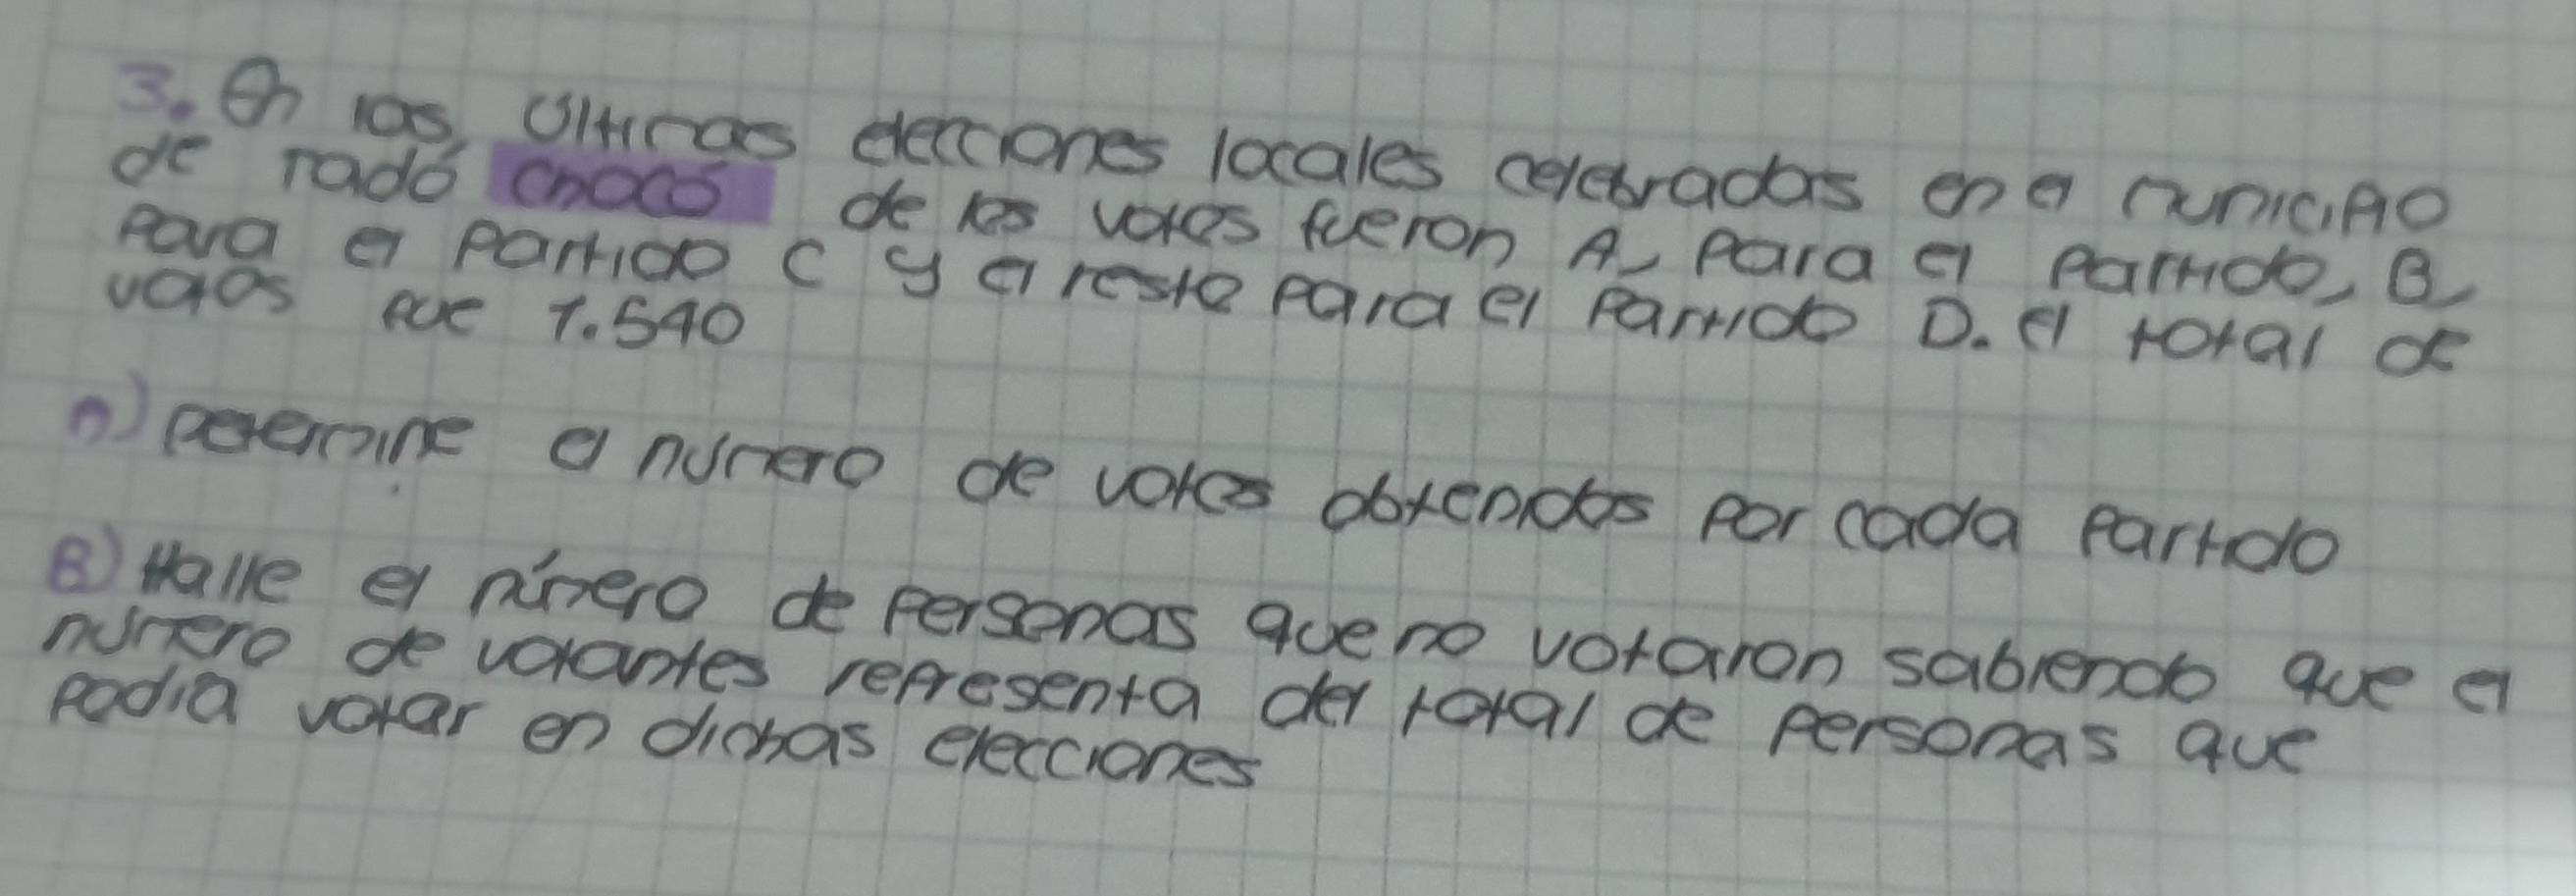 3. En las últimas elecciones locales celebradas en el municipio
de Tadó Chocó de los votos fueron A, para el partido, B,
para el partido C y el resto para el partido D. el total de
votos fue 1.540
A) Determine el número de votos obtenidos por cada partido
B) Halle el número de personas que no votaron sabiendo que el
número de votantes representa del total de personas que
podia votar en dichas elecciones